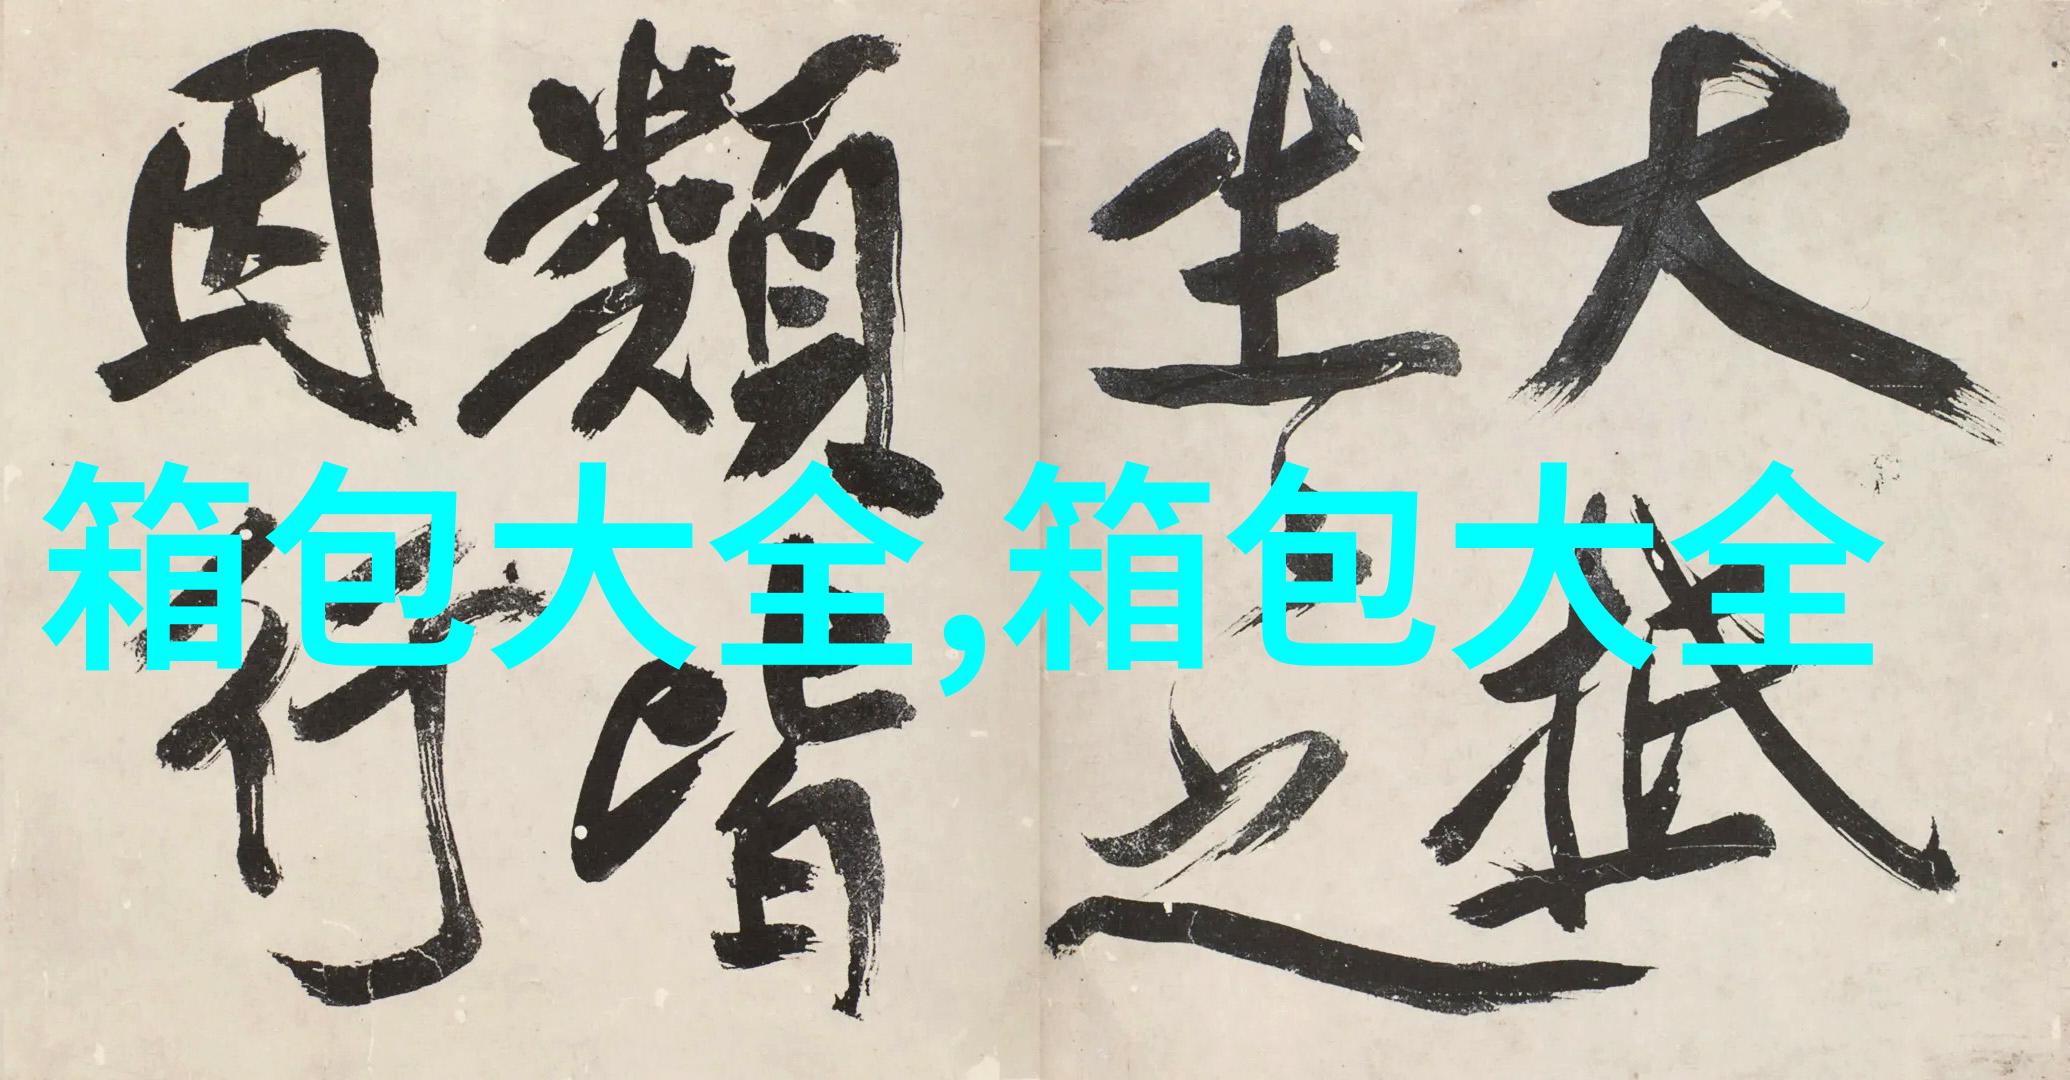 大抵
生之
類皆
因行
箱包大全,箱包大全